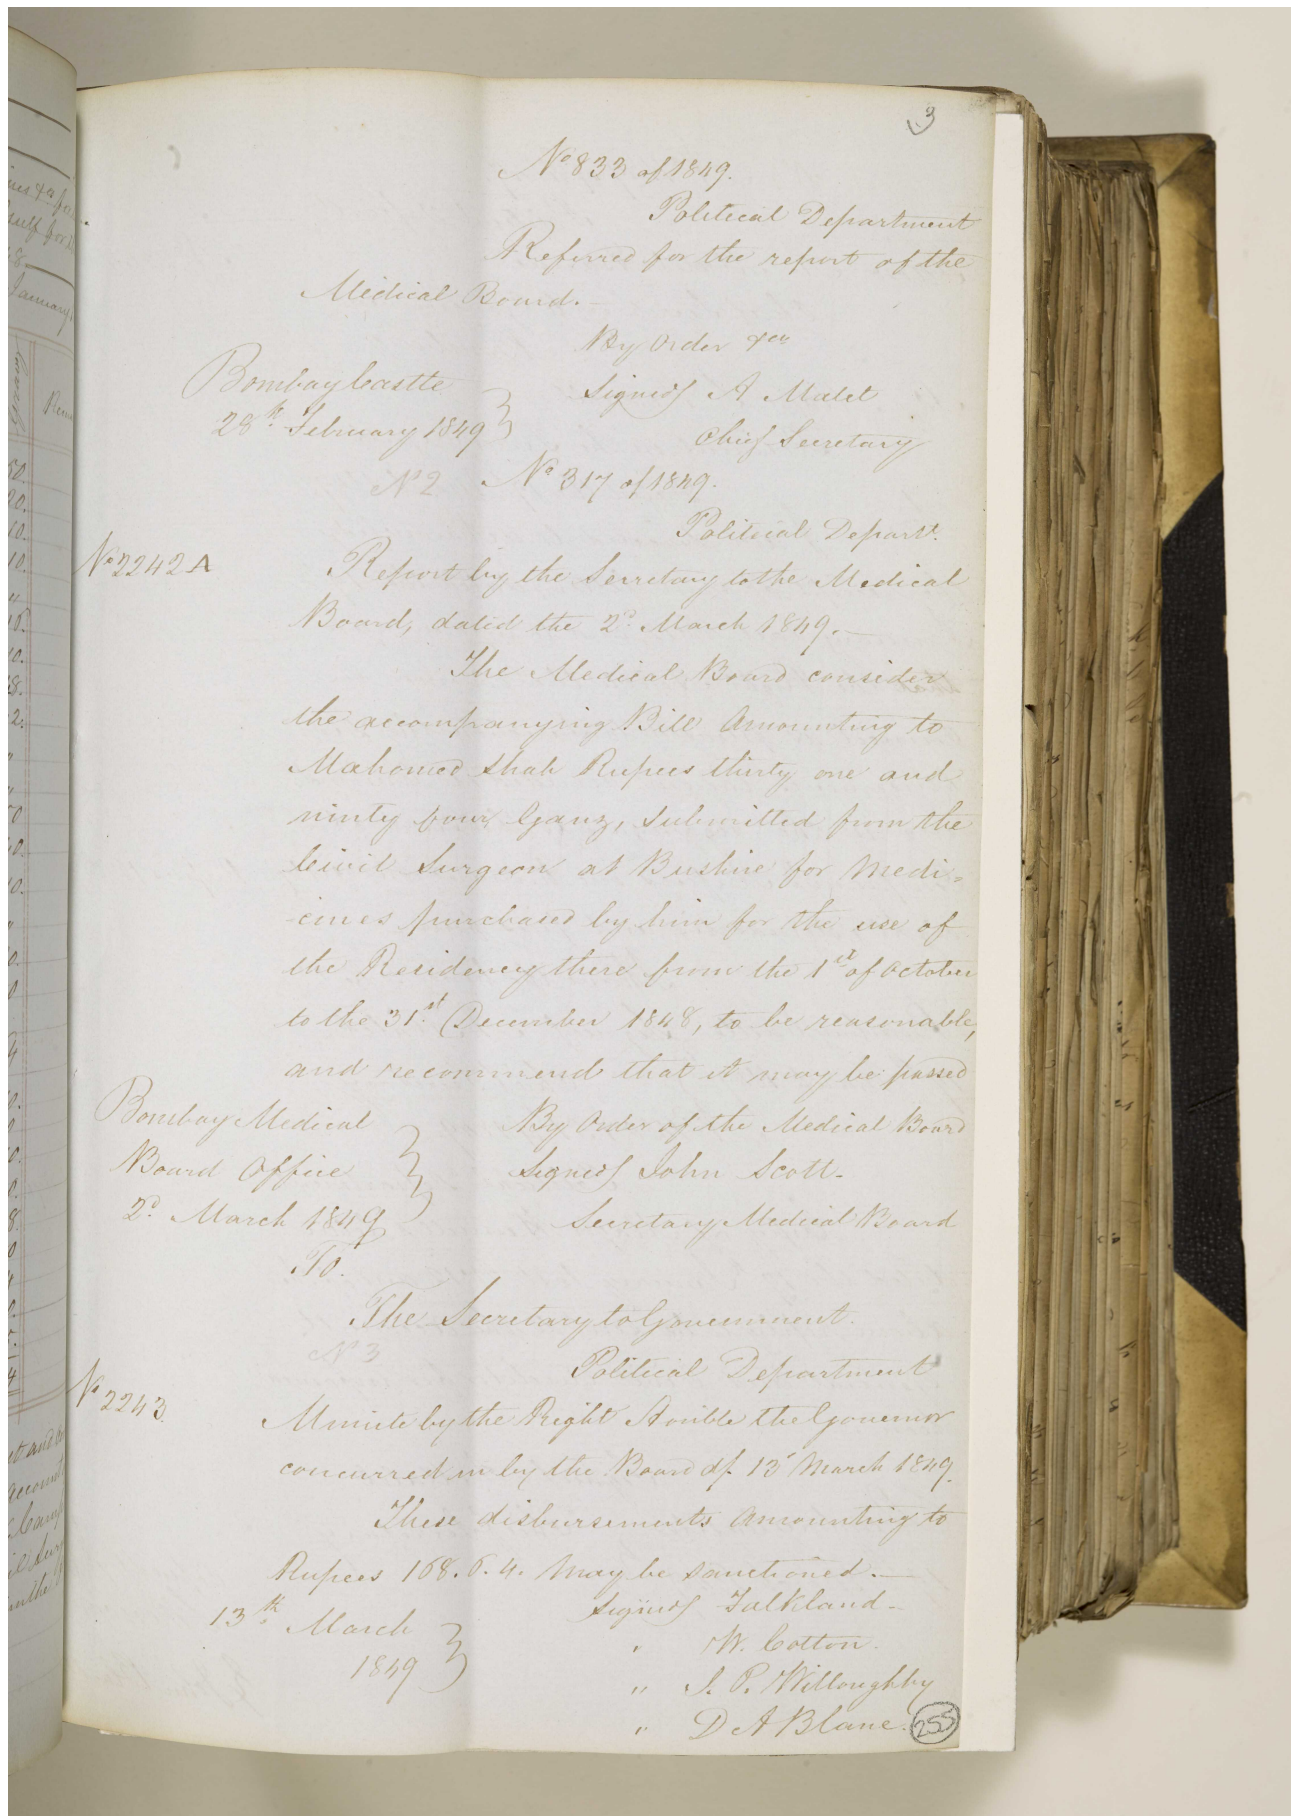 3
No 833 of 1849.
Political Department
Referred for the report of the
Medical Board.—
By Order &ca
Bombay Castle
28th February 1849
Signed A Malet
Chief Secretary
No 2
No 317 of 1849.
Political Departt.
No 2242 A
Report by the Secretary to the Medical
Board, dated the 2d March 1849.—
The Medical Board consider
the accompanying Bill Amounting to
Mahomed Shah Rupees thirty one and
ninty four Ganz, Submitted from the
Civil Surgeon at Bushire for Medi-
-cines purchased by him for the use of
the Residency there from the 1st of October
to the 31st December 1848, to be reasonable,
and recommend that it may be passed
Bombay Medical
Board Office
2d March 1849
By Order of the Medical Board
Signed John Scott-
Secretary Medical Board
To.
The Secretary to Government.
No 3
Political Department
No 2243.
Minute by the Right Honble the Governor
concurred in by the Board df. 13 March 1849.
These disbursements Amounting to
Rupees 168. 6. 4. may be sanctioned.—
13th March
1849
Signed Falkland-
" W. Cotton.
" J. P. Willoughby
" D A Blane.
255